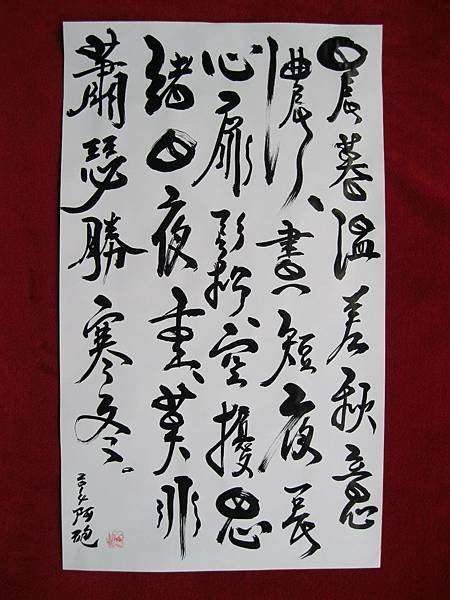 晨暮溫差秋意
濃、晝短夜長
心扉空擾思
緒日夜重、莫非
蕭瑟勝寒冬。
阿砲